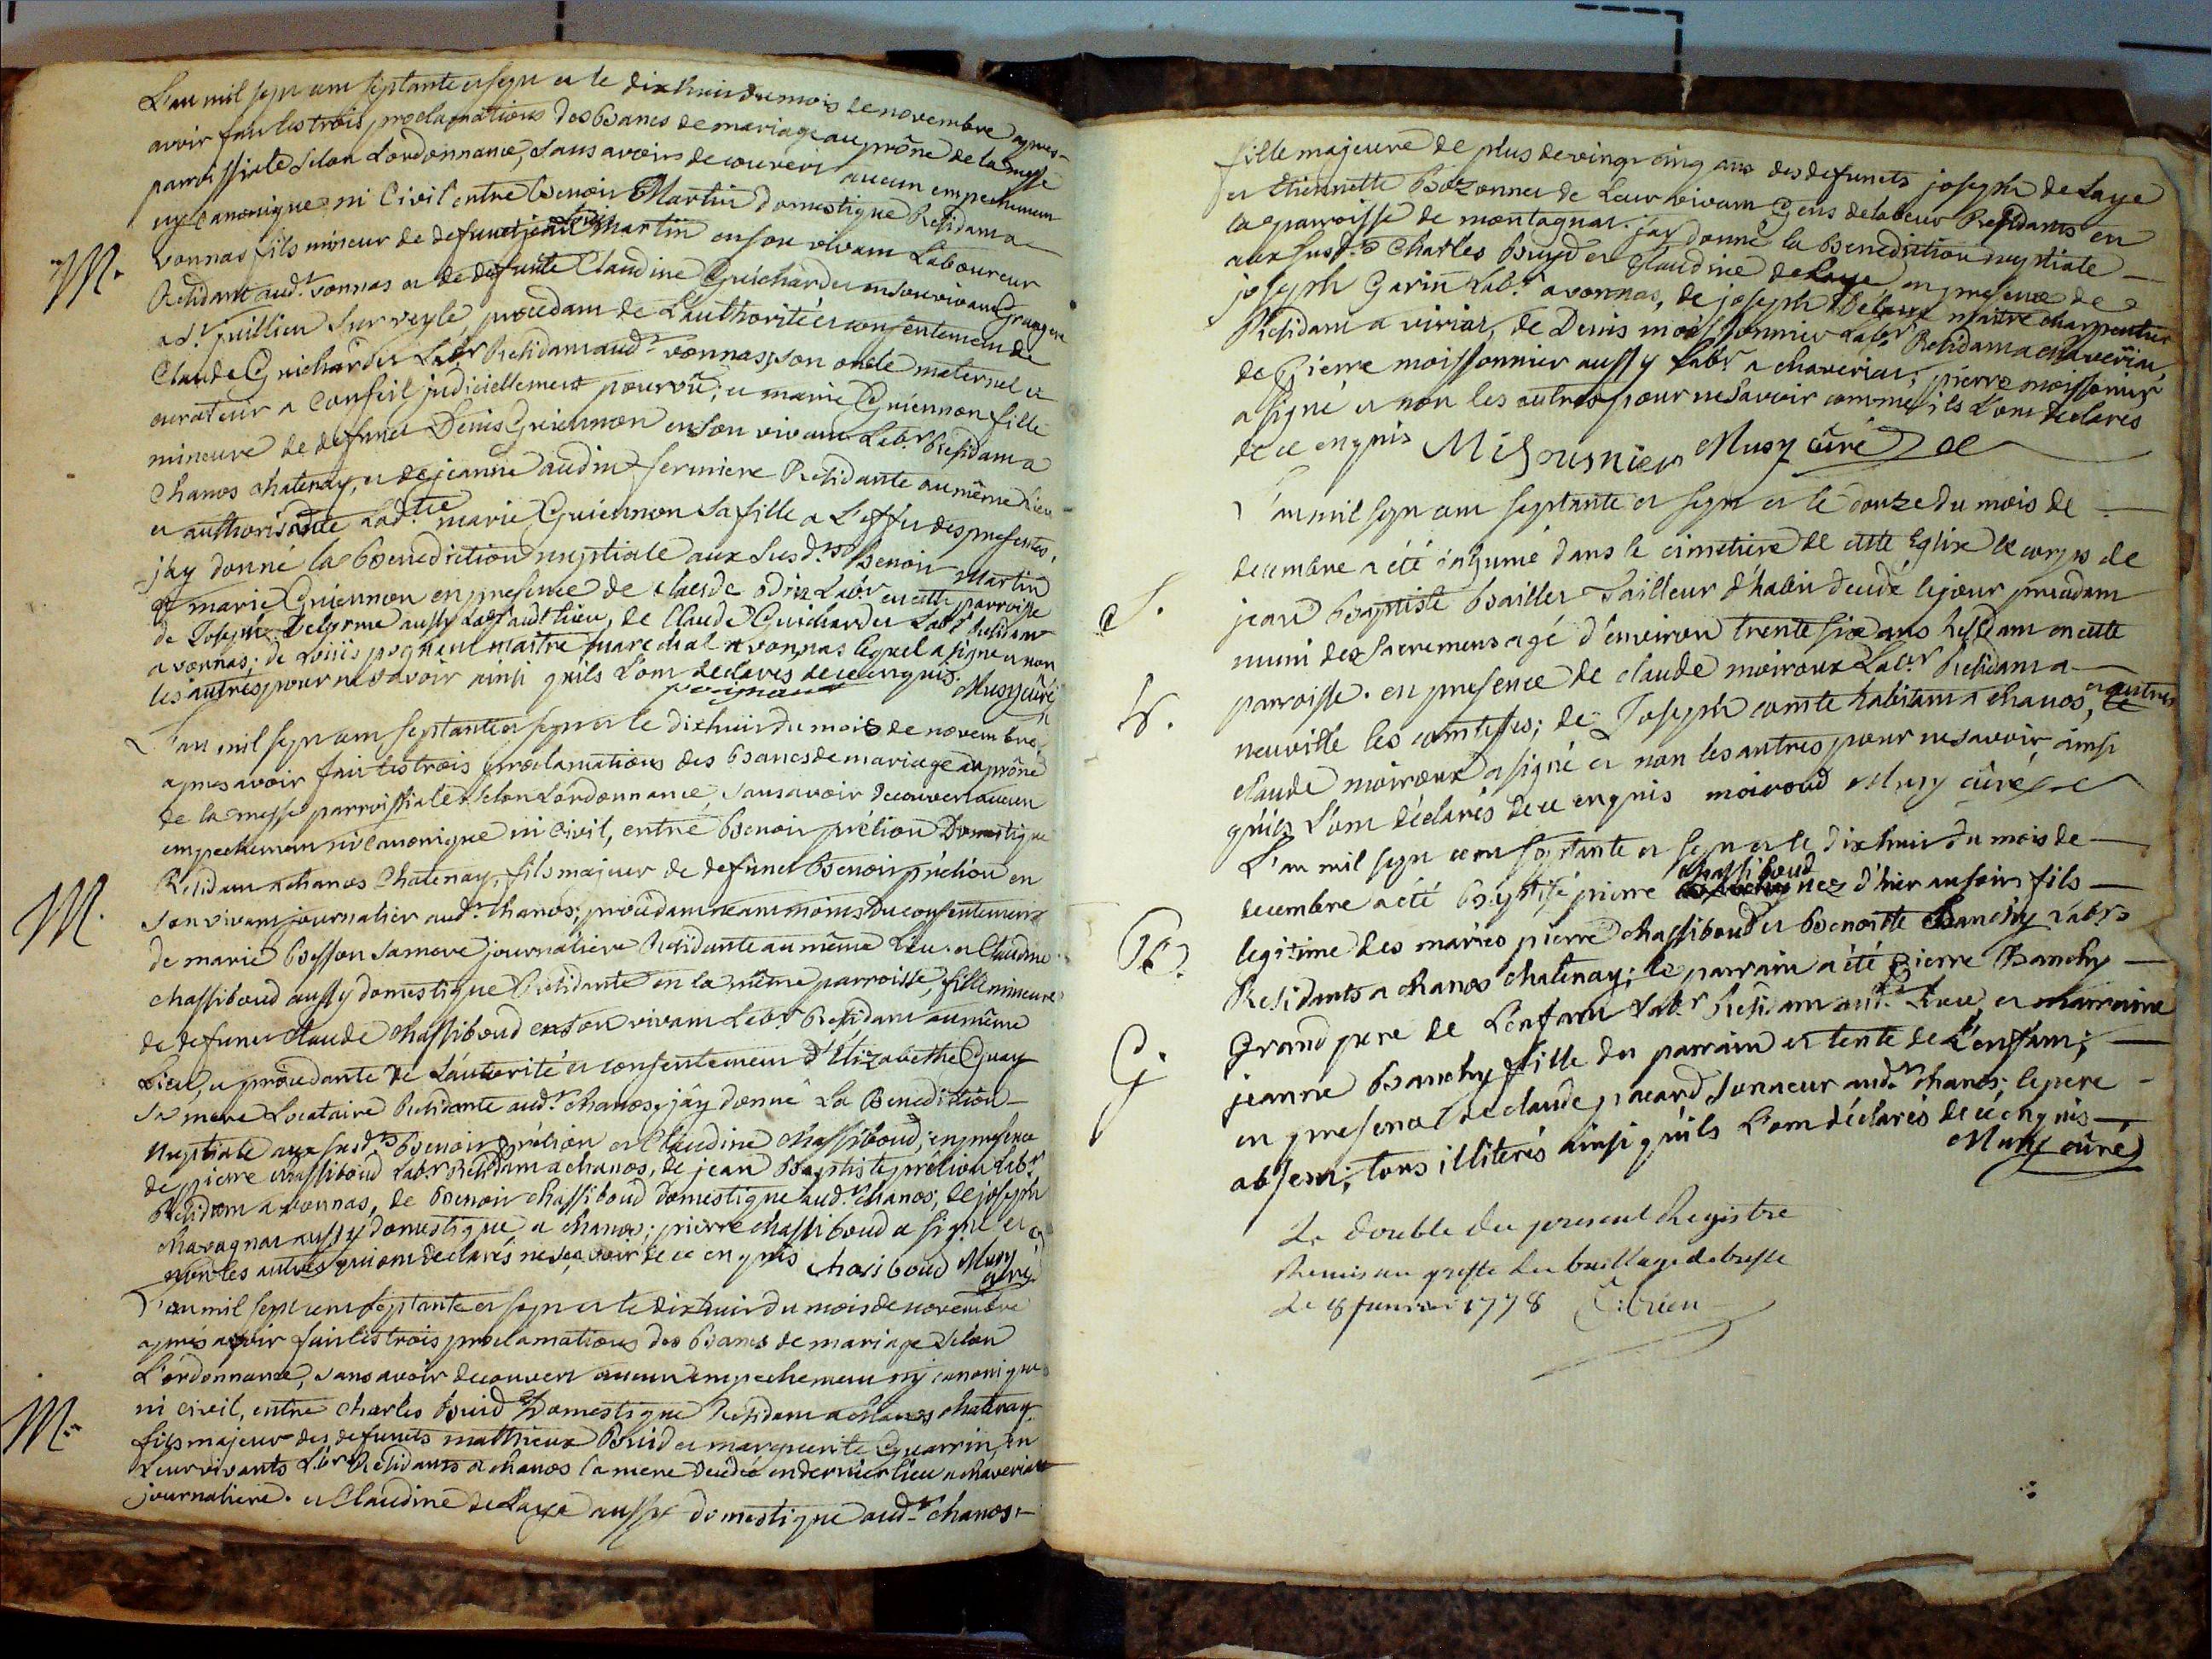 L'an mil sept cent septante et sept et le dix huit du mois de novembre apres
avoir fait les trois proclamations des bancs de mariage au prône de la messe
parroissiale selon L'ordonnance, sans avoir decouvert aucun empechement
ny canonique ni Civil entre Benoit Martin domestique Residant a
vonnas fils mineur de defunct Martin en son vivant Laboureur
M.
Residant aud.t vonnas et de defunte Claudine Guichardet en son vivant Grangere
a S.t jullien sur veyle, procedant de L'authorité et consentement de
Claude Guichardet Lab.r Residant aud.t vonnas, son oncle maternel et
curateur a Conseil judiciellement pourvû; et marie Guiennon fille
mineure de defunct Denis Guiennon en son vivant Lab.r Residant a
Chanos chatenay, et de jeanne audin fermiere Residante au même lieu
et authorisante lad.tte marie Guiennon sa fille a L'effet des presentes,
jay donné la Benediction nuptiale aux susd.ts Benoit Martin
et marie Guiennon en presence de claude Lab.r en cette parroisse
de Joseph Delorme aussy Lab.r aud.t lieu, de Claude Guichardet Lab.r Residant
a vonnas; de Louis pognant maitre marechal a vonnas lequel a signé et non
les autres pour ne savoir ainsi quils L'ont declarés de ce enquis.
poignant Musy curé
L'an mil sept cent septante et sept et le dix huit du mois de novembre
apres avoir fait les trois proclamations des bancs de mariage au prône
de la messe parroissiale selon L'ordonnance, sans avoir decouvert aucun
empechement ni canonique ni civil, entre Benoit prélion Domestique
Residant a chanos Chatenay, fils majeur de defunct Benoit prélion en
M.
son vivant journalier aud.t chanos; procedant neanmoins du consentement
de marie Besson sa mere journaliere Residante au même Lieu et Claudine
chassiboud aussy domestique Residante en la même parroisse, fille mineure
de defunct claude chassiboud en son vivant Lab.r Residant au même
Lieu, et procedante de L'autorité et consentement d'Elizabethe Guay
sa mere Locataire Residante aud.t chanos, jây donné La Benediction
Nuptiale aux susd.ts Benoit prélion et Claudine chassiboud; en presence
de pierre chassiboud Lab.r Residant a chanos, de jean Baptiste prélion Lab.r
Residant a vonnas, de Benoit chassiboud domestique aud.t chanos; de joseph
chavagnat aussy domestique a chanos; pierre chassiboud a signé et
non les autres qui ont declarés ne sçavoir de ce enquis chasiboud Musy
curé
L'an mil sept cent septante et sept et le dix huit du mois de novembre
après avoir fait les trois proclamations des Bancs de mariage selon
L'ordonnance, sans avoir decouvert aucun empechement ny canonique
ni civil, entre charles Buid Domestique Residant a chanos chatenay
M.
fils majeur des defuncts matthieux Buid et marguerite Guarrin, en
Leur vivants L.brs Residants a chanos la mere decedée en dernier lieu a chaveriat
journaliere. et Claudine de Laye aussy domestique aud.t chanos
fille majeure de plus de vingt cinq ans des defuncts joseph de Laye
et Etiennette Bozonnet de Leur vivant Gens de labeur Residants en
la parroisse de montagnat. jay donné la benediction nuptiale
aux susd.ts Charles Buyd et Claudine de Laye en presence de
joseph Garin Lab.r a vonnas, de joseph Delaye maitre charpentier
Residant a viriat, de Denis moissonnier Lab.r Residant a chaveriat,
de Pierre moissonnier aussy Lab.r a chaveriat; pierre moissonnier
a signé et non les autres pour ne savoir comme ils L'ont declarés
de ce enquis Misounier Musy curé
L'an mil sept cent septante et sept et le douze du mois de
decembre a été inhumé dans le cimetiere de cette Eglise le corps de
S.
jean Baptiste Baillet Tailleur d'habit decedé le jour precedant
muni des Sacremens agé d'environ trente six ans Residant en cette
parroisse. en presence de claude moiroux Lab.r Residant a
neuville les comtesses; de Joseph comte habitant a chanos, et autres
claude moiroux a signé et non les autres pour ne savoir ainsi
quils L'ont déclarés de ce enquis moiroud Musy curé
L'an mil sept cent septante et sept et le dix huit du mois de
chassiboud
decembre a été Baptisé pierre nez d'hier au soir fils
legitime des mariés pierre chassiboud et Benoitte Banchy Lab.rs
Residants a chanos chatenay; le parrain a été Pierre Banchy
G.
Grand pere de L'enfant Lab.r Residant aud.t Lieu, et marraine
jeanne Banchy fille du parrain et tente de L'enfant;
en presence de claude jacard Sonneur aud.t chanos; le pere
absent; tous illiterés ainsi qu'ils L'ont déclarés de ce enquis
Musy curé
Le double du present Registre
Remis au greffe du bailliage de bresse
Le 8 janvier 1778